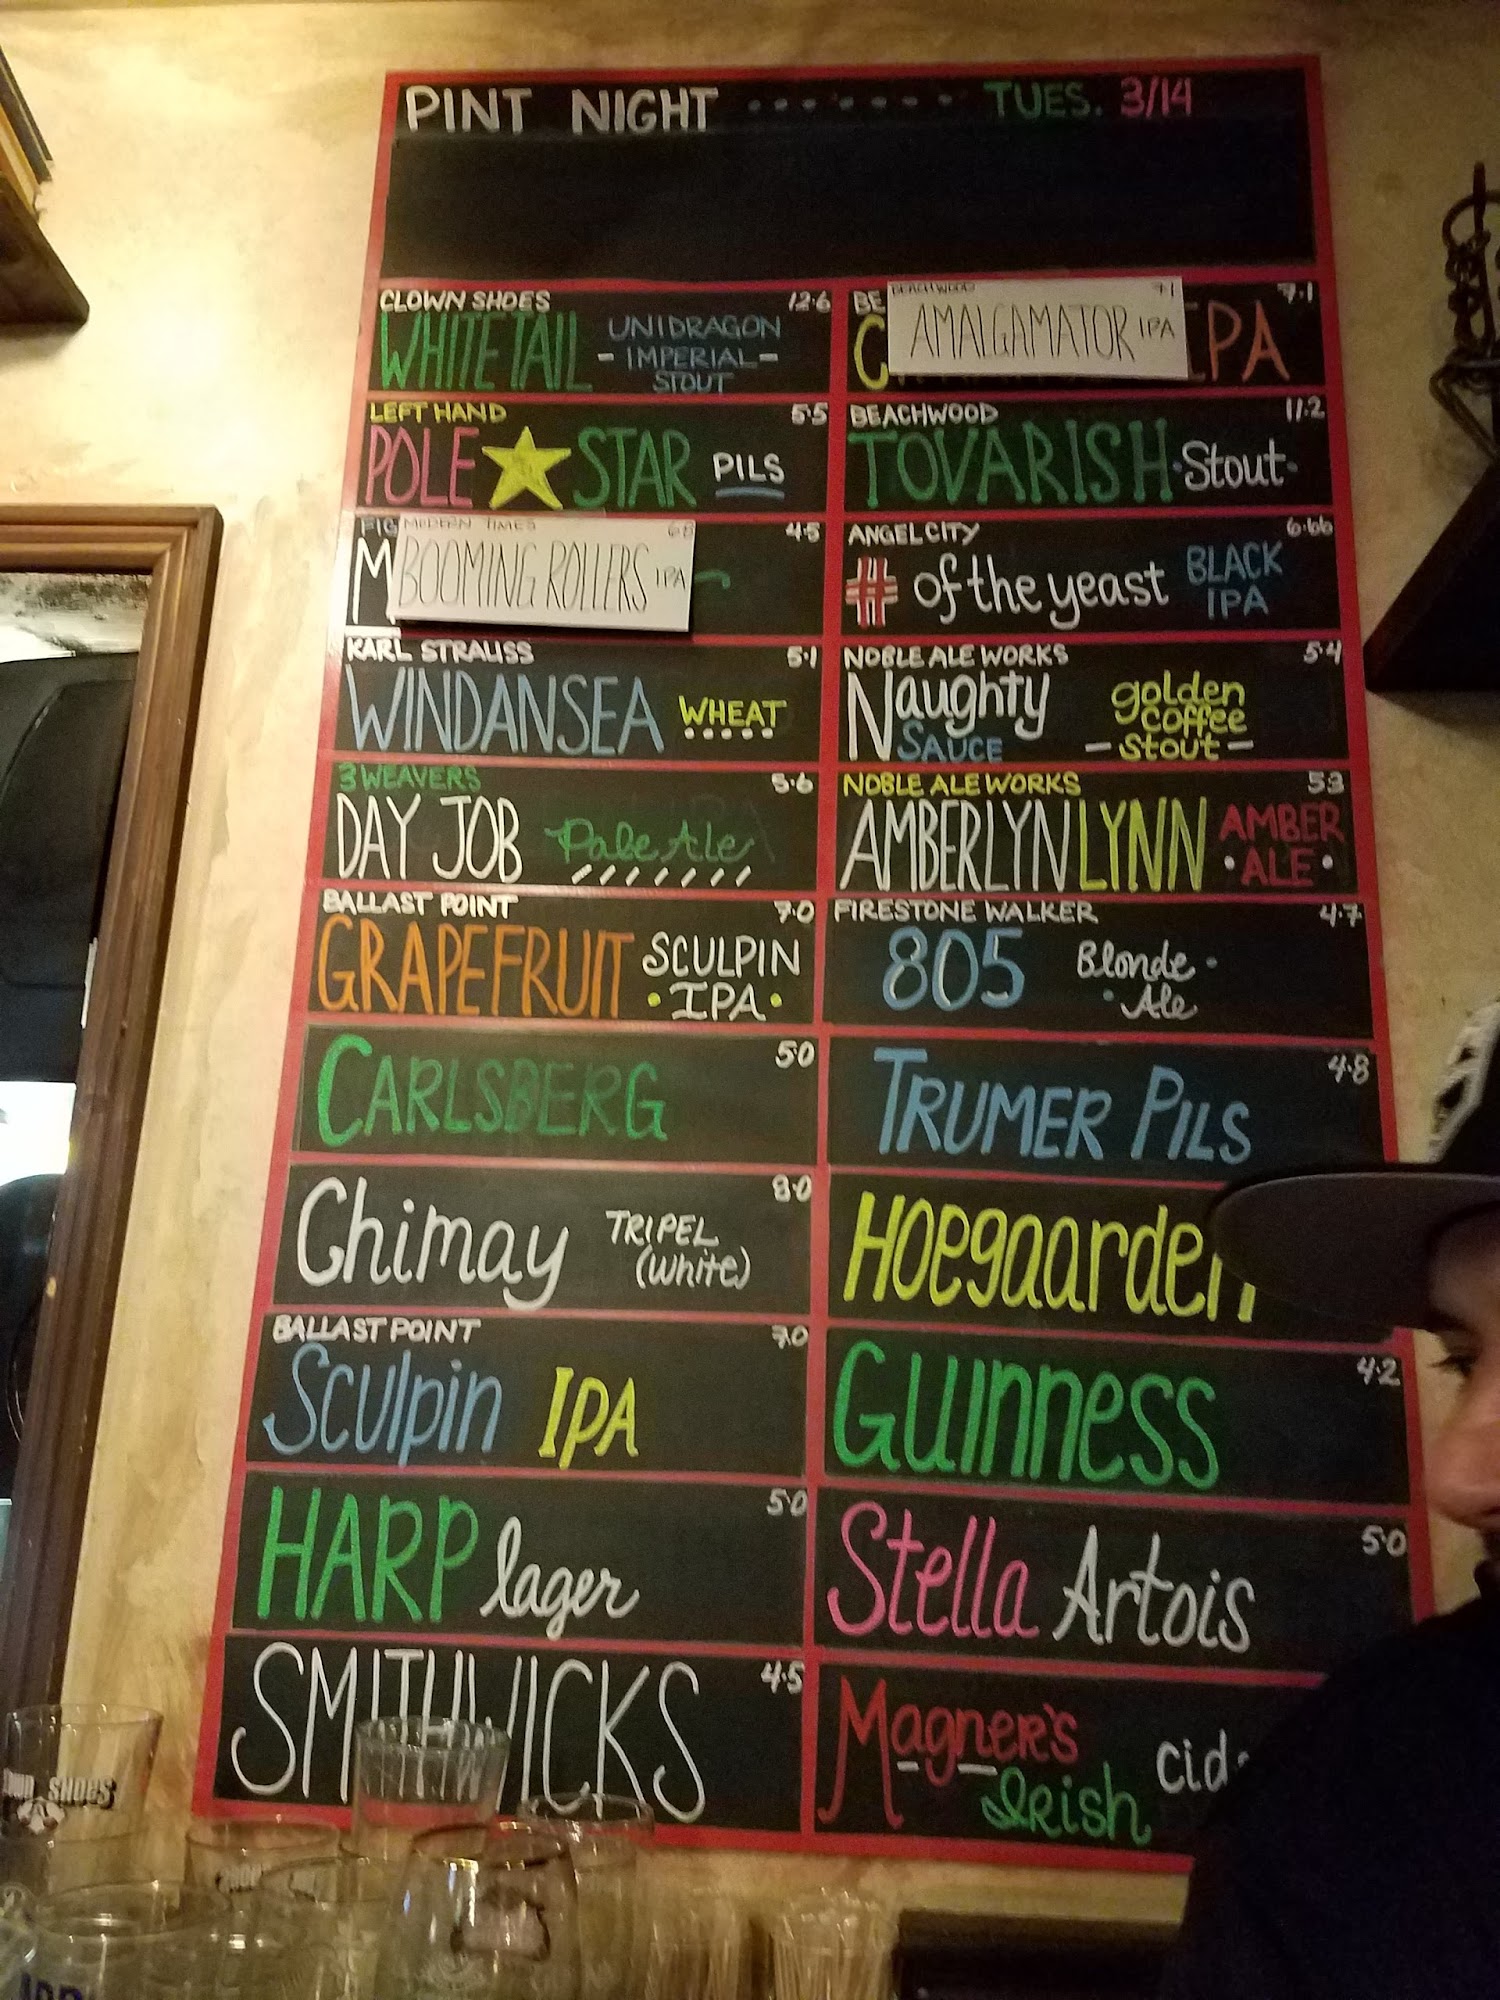 PINT NIGHT ········ TUES. 3/14
CLOWN SHOES 12.6
WHITE TAIL UNIDRAGON
- IMPERIAL -
STOUT
BEACHWOOD 7.1
AMALGAMATOR IPA
BE 7.1
C IPA
LEFT HAND 5.5
POLE STAR PILS
BEACHWOOD 11.2
TOVARISH ·Stout·
MODERN TIMES 6.8
BOOMING ROLLERS IPA
FIG 4.5
M
ANGEL CITY 6.66
# of the yeast BLACK
IPA
KARL STRAUSS 5.1
WINDANSEA WHEAT
NOBLE ALE WORKS 5.4
Naughty
SAUCE
golden
coffee
- stout -
3 WEAVERS 5.6
DAY JOB Pale Ale
NOBLE ALE WORKS 5.3
AMBERLYN LYNN AMBER
· ALE ·
BALLAST POINT 7.0
GRAPEFRUIT SCULPIN
· IPA ·
FIRESTONE WALKER 4.7
805 Blonde ·
· Ale
CARLSBERG 5.0
TRUMER PILS 4.8
Chimay TRIPEL 8.0
(white)
HOegaarden
BALLAST POINT 7.0
Sculpin IPA
GUINNESS 4.2
HARP lager 5.0
Stella Artois 5.0
SMITHWICKS 4.5
Magner's
Irish cid
SHOES